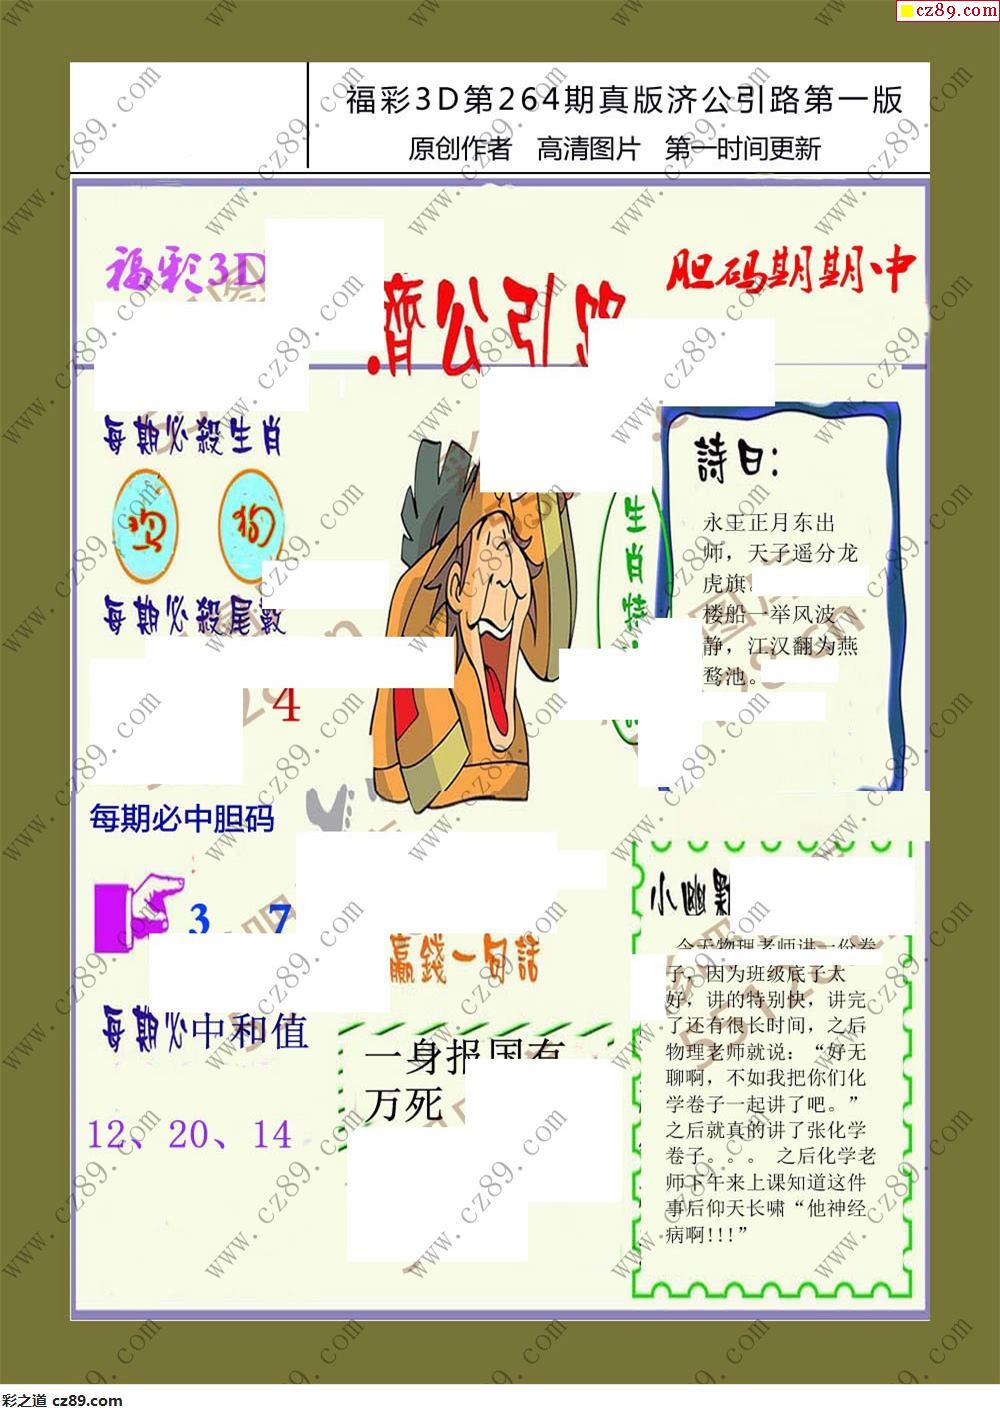 cz89.com
福彩3D第264期真版济公引路第一版
原创作者 高清图片 第一时间更新
福彩3D
胆码期期中
濟公引
每期必殺生肖
鸡 狗
每期必殺尾數
4
生肖特
詩曰：
永王正月东出
师，天子遥分龙
虎旗
楼船一举风波
静，江汉翻为燕
鹜池。
每期必中胆码
3、7
赢錢一句話
一身报国有
万死
每期必中和值
12、20、14
小幽默
今天物理老师讲一份卷
子，因为班级底子太
好，讲的特别快，讲完
了还有很长时间，之后
物理老师就说：“好无
聊啊，不如我把你们化
学卷子一起讲了吧。”
之后就真的讲了张化学
卷子。。。 之后化学老
师下午来上课知道这件
事后仰天长啸“他神经
病啊!!!”
www.cz89.com
彩之道 cz89.com